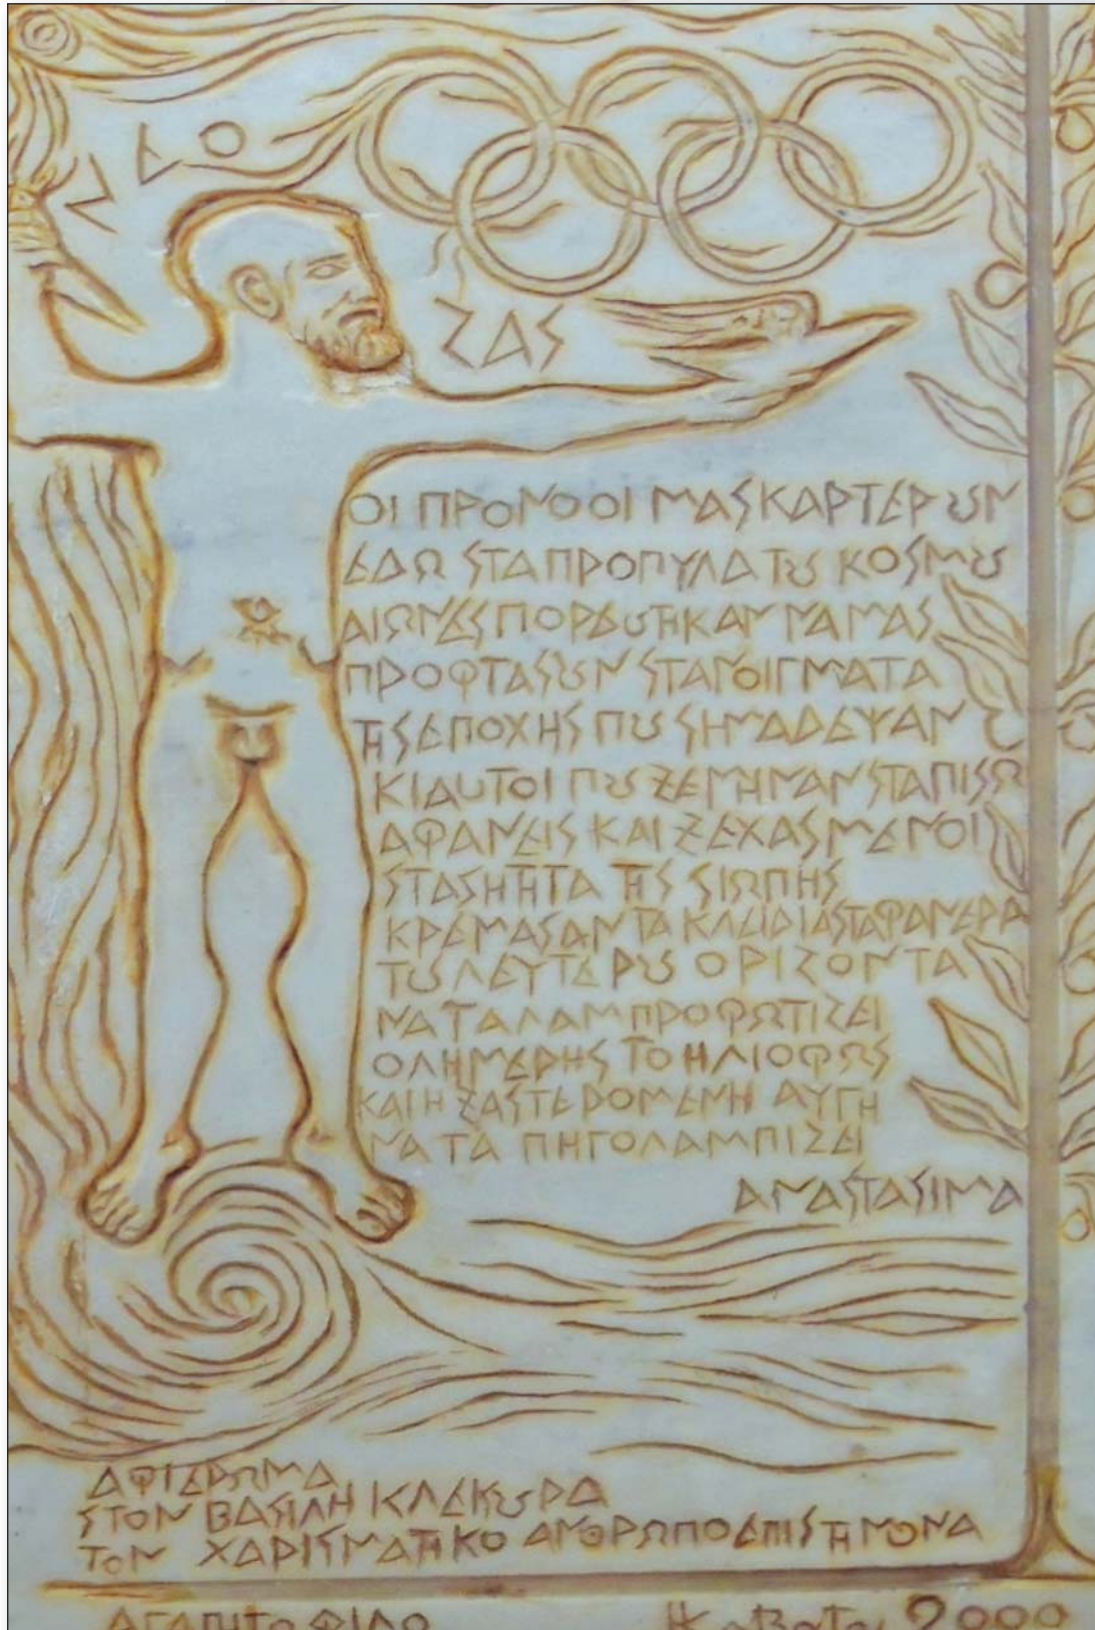 ΖΑΣ
ΟΙ ΠΡΟΓΟΝΟΙ ΜΑΣ ΚΑΡΤΕΡȢΝ
ΕΔΩ ΣΤΑ ΠΡΟΠΥΛΑ ΤȢ ΚΟΣΜȢ
ΑΙΩΝΕΣ ΠΟΡΕΥΤΗΚΑΝ ΝΑ ΜΑΣ
ΠΡΟΦΤΑΣȢΝ ΣΤ ΑΝΟΙΓΜΑΤΑ
ΤΗΣ ΕΠΟΧΗΣ ΠȢ ΣΗΜΑΔΕΨΑΝ
ΚΙ ΑΥΤΟΙ ΠȢ ΞΕΜΗΝΑΝ ΣΤΑ ΠΙΣΩ
ΑΦΑΝΕΙΣ ΚΑΙ ΞΕΧΑΣΜΕΝΟΙ
ΣΤΑΣΗΤΗΤΑ ΤΗΣ ΣΙΩΠΗΣ
ΚΡΕΜΑΣΑΝ ΤΑ ΚΛΕΙΔΙΑ ΣΤΑ ΦΑΝΕΡΑ
ΤȢ ΛΕΥΤΕΡȢ ΟΡΙΖΟΝΤΑ
ΝΑ ΤΑ ΛΑΜΠΡΟΦΩΤΙΖΕΙ
ΟΛΗΜΕΡΗΣ ΤΟ ΗΛΙΟΦΩΣ
ΚΑΙ Η ΞΑΣΤΕΡΟΜΕΝΗ ΑΥΓΗ
ΝΑ ΤΑ ΠΗΓΟΛΑΜΠΙΖΕΙ
ΑΝΑΣΤΑΣΙΜΑ
ΑΦΙΕΡΩΜΑ
ΣΤΟΝ ΒΑΣΙΛΗ ΚΛΕΚȢΡΑ
ΤΟΝ ΧΑΡΙΣΜΑΤΙΚΟ ΑΝΘΡΩΠΟ ΕΠΙΣΤΗΜΟΝΑ
ΑΓΑΠΗΤΟ ΦΙΛΟ 2000